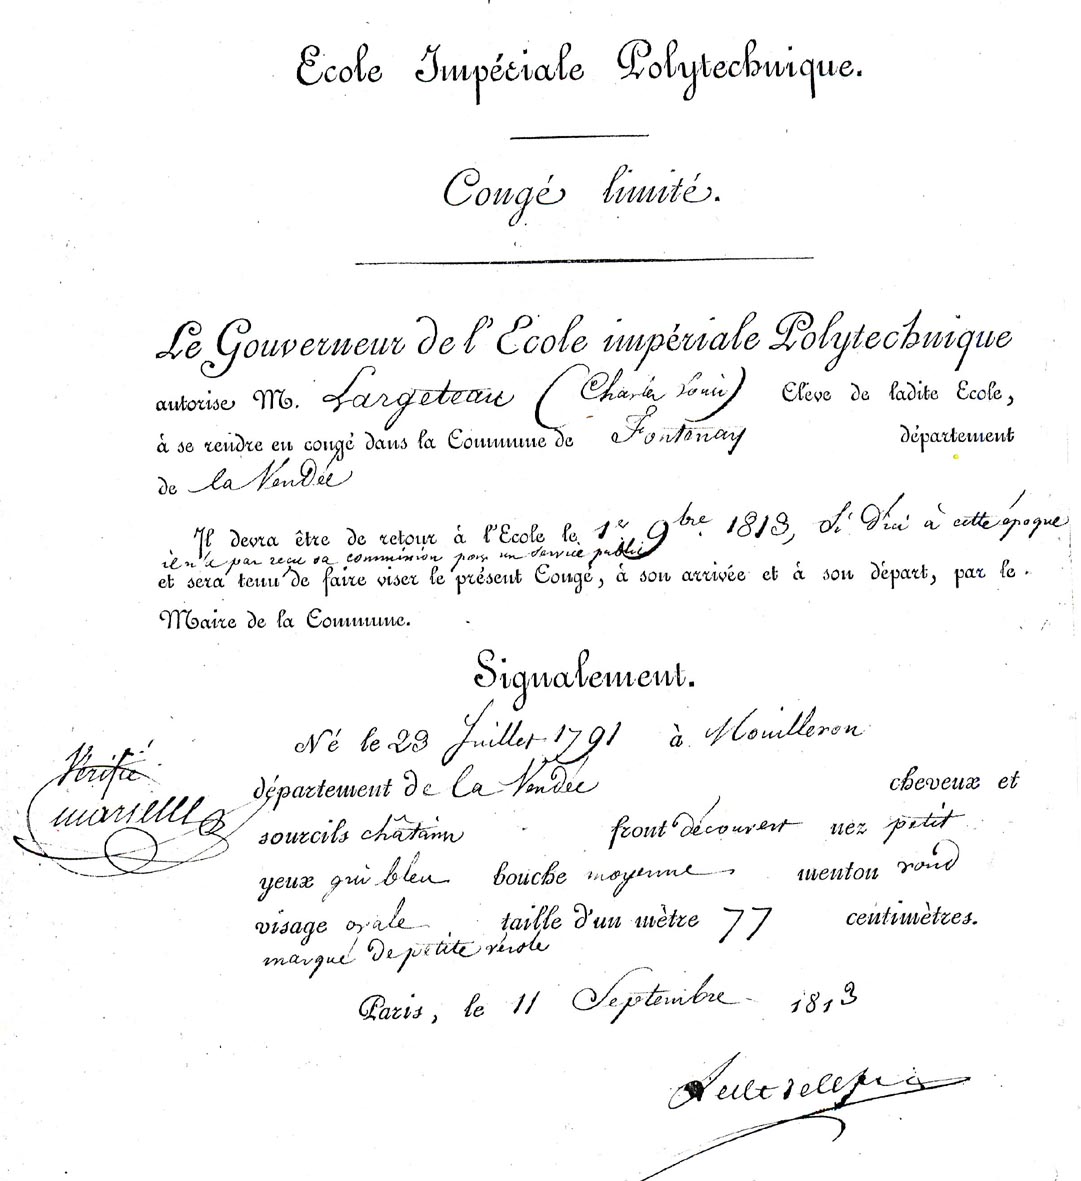 Ecole Impériale Polytechnique.
Congé limité.
Le Gouverneur de l'Ecole impériale Polytechnique
autorise M. Largeteau (Charles Louis) Elève de ladite Ecole,
à se rendre en congé dans la Commune de Fontenay département
de la Vendée
Il devra être de retour à l'Ecole le 1er 9bre 1813, Si d'ici à cette époque
il n'a pas reçu sa commission pour un service public
et sera tenu de faire viser le présent Congé, à son arrivée et à son départ, par le
Maire de la Commune.
Signalement.
Né le 23 Juillet 1791 à Mouilleron
département de la Vendée cheveux et
sourcils châtains front découvert nez petit
yeux gris bleu bouche moyenne menton rond
visage ovale taille d'un mètre 77 centimètres.
marqué de petite vérole
Vérifié
marielle
Paris, le 11 Septembre 1813